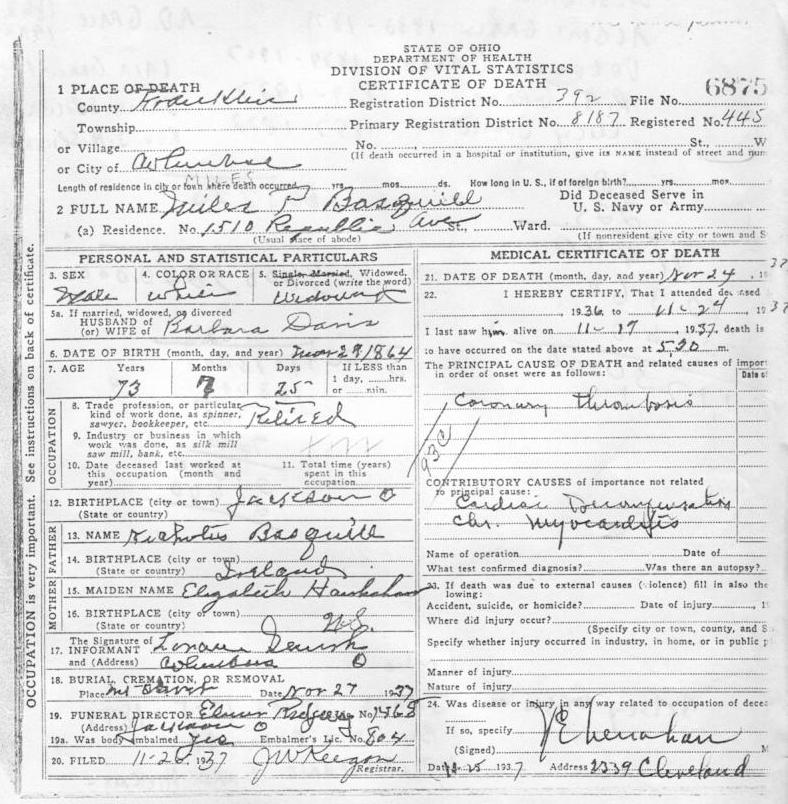 STATE OF OHIO
DEPARTMENT OF HEALTH
DIVISION OF VITAL STATISTICS
CERTIFICATE OF DEATH
6875
1 PLACE OF DEATH
County Franklin Registration District No. 392 File No.
Township Primary Registration District No. 8187 Registered No. 445
or Village No. St., W
or City of Columbus (If death occurred in a hospital or institution, give its NAME instead of street and num
MILES
Length of residence in city or town where death occurred yrs. mos. ds. How long in U. S., if of foreign birth? yrs. mos.
2 FULL NAME Miles P Basquill Did Deceased Serve in
U. S. Navy or Army
(a) Residence. No. 1510 Republic Ave St., Ward.
(Usual place of abode) (If nonresident give city or town and S
PERSONAL AND STATISTICAL PARTICULARS
3. SEX 4. COLOR OR RACE 5. Single, Married, Widowed, or Divorced (write the word)
Male White Widowed
5a. If married, widowed, or divorced
HUSBAND of
(or) WIFE of Barbara Davis
6. DATE OF BIRTH (month, day, and year) Mar 29 1864
7. AGE Years Months Days If LESS than
1 day, hrs.
or min.
73 7 25
OCCUPATION
8. Trade profession, or particular
kind of work done, as spinner,
sawyer, bookkeeper, etc. Retired
9. Industry or business in which
work was done, as silk mill
saw mill, bank, etc.
10. Date deceased last worked at
this occupation (month and
year)
11. Total time (years)
spent in this
occupation
12. BIRTHPLACE (city or town) Jackson O
(State or country)
FATHER
13. NAME Nicholus Basquill
14. BIRTHPLACE (city or town)
(State or country) Ireland
MOTHER
15. MAIDEN NAME Elizabeth
16. BIRTHPLACE (city or town)
(State or country) U.S.
The Signature of
17. INFORMANT
and (Address) Columbus O
18. BURIAL, CREMATION, OR REMOVAL
Place Date Nov 27 1937
19. FUNERAL DIRECTOR Elmer No. 1468
(Address) Jackson O
19a. Was body embalmed yes Embalmer's Lic. No. 804
20. FILED 11-26 1937 J W Keegan
Registrar.
OCCUPATION is very important. See instructions on back of certificate.
MEDICAL CERTIFICATE OF DEATH
21. DATE OF DEATH (month, day, and year) Nov 24, 1937
22. I HEREBY CERTIFY, That I attended deceased
1936 to 11-24, 1937
I last saw him alive on 11-17, 1937, death is
to have occurred on the date stated above at 5:30 m.
The PRINCIPAL CAUSE OF DEATH and related causes of impor
in order of onset were as follows: Date of
Coronary Thrombosis
93C
CONTRIBUTORY CAUSES of importance not related
to principal cause:
Cardiac Decompensation
Chr. Myocarditis
Name of operation Date of
What test confirmed diagnosis? Was there an autopsy?
23. If death was due to external causes (violence) fill in also the
lowing:
Accident, suicide, or homicide? Date of injury, 1
Where did injury occur?
(Specify city or town, county, and S
Specify whether injury occurred in industry, in home, or in public p
Manner of injury
Nature of injury
24. Was disease or injury in any way related to occupation of decea
If so, specify
(Signed) M
Date 1937 Address 2339 Cleveland